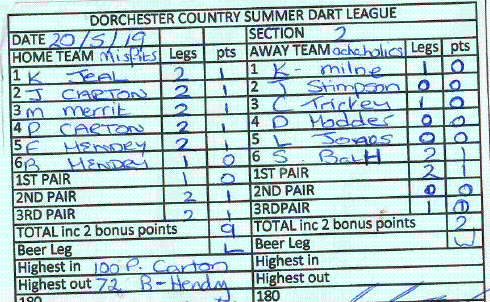 DORCHESTER COUNTRY SUMMER DART LEAGUE
DATE 20/5/19 SECTION 2
HOME TEAM Misfits Legs pts AWAY TEAM ochaholics Legs pts
1 K Jeal 2 1 1 K- milne 1 0
2 J CARTON 2 1 2 J Stimpson 0 0
3 m merrit 2 1 3 C Trickey 1 0
4 P CARTON 2 1 4 D Hodder 0 0
5 F HENDRY 2 1 5 L Jonas 0 0
6 B HENDRY 1 0 6 S. BatH 2 1
1ST PAIR 1 0 1ST PAIR 2 1
2ND PAIR 2 1 2ND PAIR 0 0
3RD PAIR 2 1 3RDPAIR 1 0
TOTAL inc 2 bonus points 9 TOTAL inc 2 bonus points 2
Beer Leg L Beer Leg W
Highest in 100 P. Carton Highest in
Highest out 72 B-Hendry Highest out
180 180